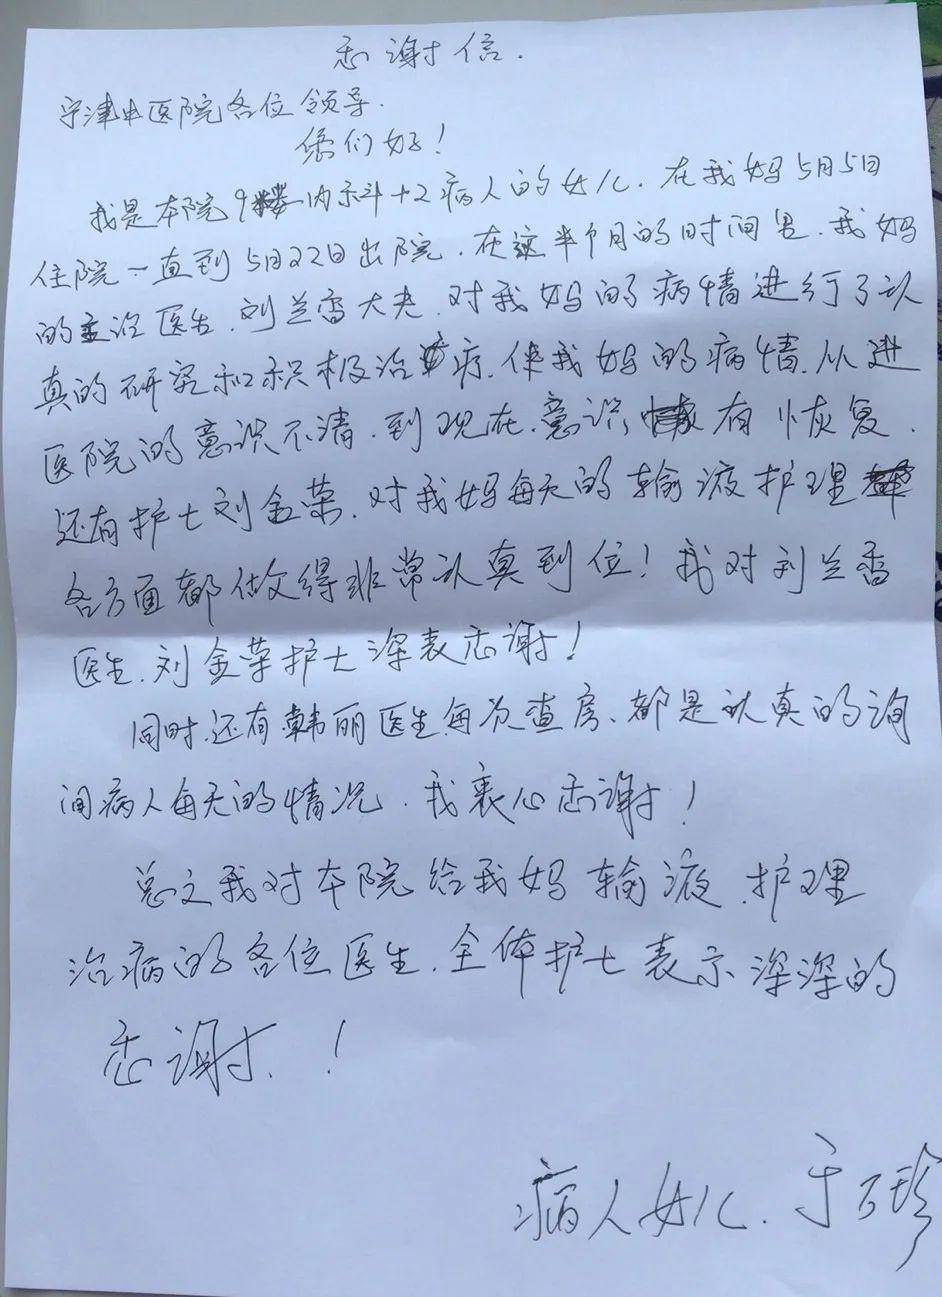 感谢信.
宁津中医院各位领导.
您们好!
我是本院9楼内科+2病人的女儿.在我妈5月5日
住院一直到5月22日出院.在这半个月的时间里.我妈
的主治医生.刘兰香大夫.对我妈的病情进行了认
真的研究和积极治疗.使我妈的病情.从进
医院的意识不清.到现在.意识有恢复.
还有护士刘金荣.对我妈每天的输液护理
各方面都做得非常认真到位!我对刘兰香
医生.刘金荣护士深表感谢!
同时.还有韩丽医生每次查房.都是认真的询
问病人每天的情况.我衷心感谢!
总之我对本院给我妈输液.护理
治病的各位医生.全体护士表示深深的
感谢.!
病人女儿.于 珍